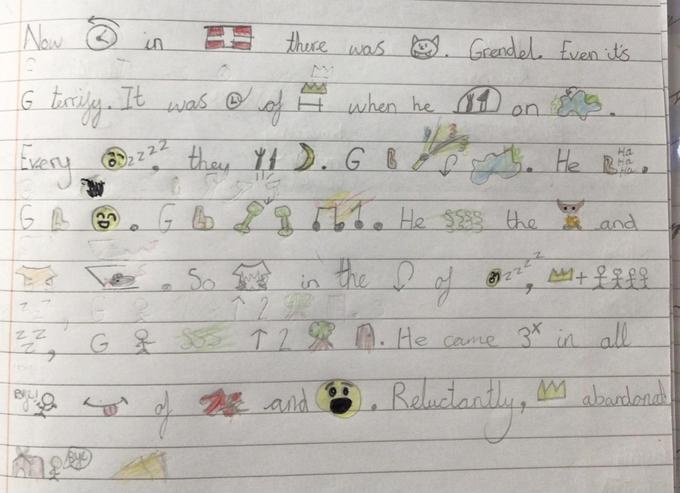 Now in there was . Grendel. Even it's
G terrify. It was of when he on .
Every zzzz, they . G . He Ha Ha Ha.
G . G . He the and
. So in the of zzzz, +
zz zz, G ↑ 2 . He came 3x in all
Bye of and . Reluctantly, abandoned
Bye